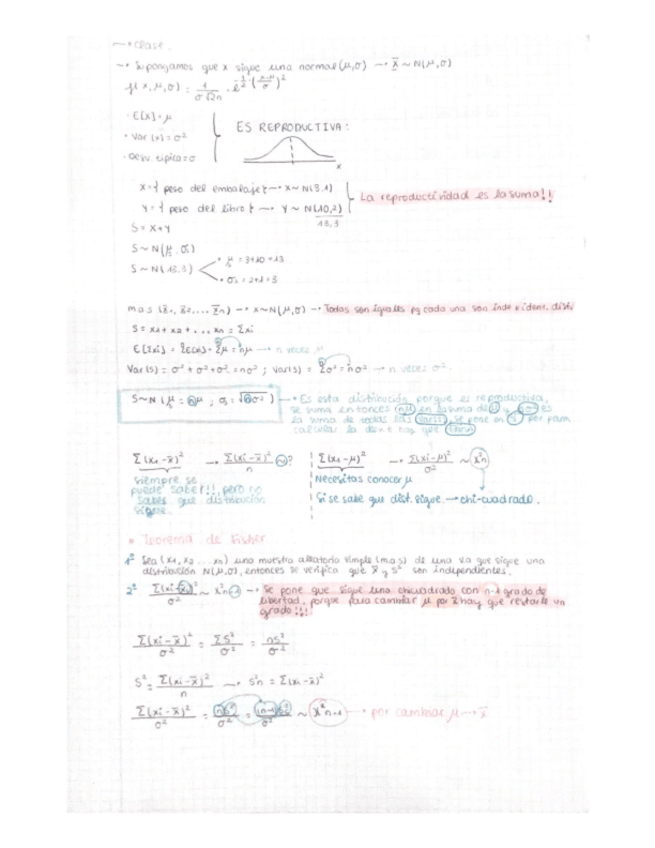 ~• Clase.
~• Supongamos que x sigue una normal (μ,σ) ~• x̄ ~ N(μ,σ)
f(x,μ,σ) = 1/(σ√2π) · e^(-1/2·((x-μ)/σ)²)
· E[x]=μ
· Var(x)=σ²
· Desv. típica=σ
ES REPRODUCTIVA:
x
X={ peso del embalaje } ~• X~ N(3,1)
Y={ peso del libro } ~• Y ~ N(10,2)
13,3
La reproductividad es la suma!!
S=X+Y
S~ N(μs, σs)
S~ N(13,3)
• μs = 3+10=13
• σs = 2+1=3
mas (x1, x2,... xn) ~• x~N(μ,σ) ~• Todas son iguales pq cada una son
S= x1+x2+... xn = Σxi
E[Σxi] = ΣE(xi)= Σμ = nμ ~• n veces μ
Var(s) = σ²+σ²+σ².. =nσ² ; var(s) = Σσ²=nσ² ~• n veces σ².
S~N (μs = nμ ; σs = √nσ² )
~• Es esta distribución porque es reproductiva,
se suma entonces nμ en la suma de μ y es
la suma de todas las var(s), se pone en
calcular la
Σ(xi-x̄)² ~• Σ(xi-x̄)²/σ² ~ ?
siempre se
puede saber!!, pero no
sabes que distribución
sigue.
Σ(xi-μ)² ~• Σ(xi-μ)²/σ² ~ χ²n
Necesitas conocer μ
Si se sabe que dist. sigue. ~• chi-cuadrado.
* Teorema de Fisher
1º Sea (x1, x2 ... xn) una muestra aleatoria simple (mas) de una va que sigue una
distribución N(μ,σ), entonces se verifica que x̄ y S² son independientes.
2º Σ(xi-x̄)²/σ² ~ χ²n-1 ~• Se pone que sigue una chicuadrado con n-1 grado de
libertad, porque para cambiar μ por x̄ hay que restarle un
grado!!!
Σ(xi-x̄)²/σ² = ΣS²/σ² = nS²/σ²
S² = Σ(xi-x̄)²/n ~• S²n = Σ(xi-x̄)²
Σ(xi-x̄)²/σ² = nS²/σ² = (n-1)S²/σ² ~ χ²n-1 ~• por cambiar μ ~• x̄